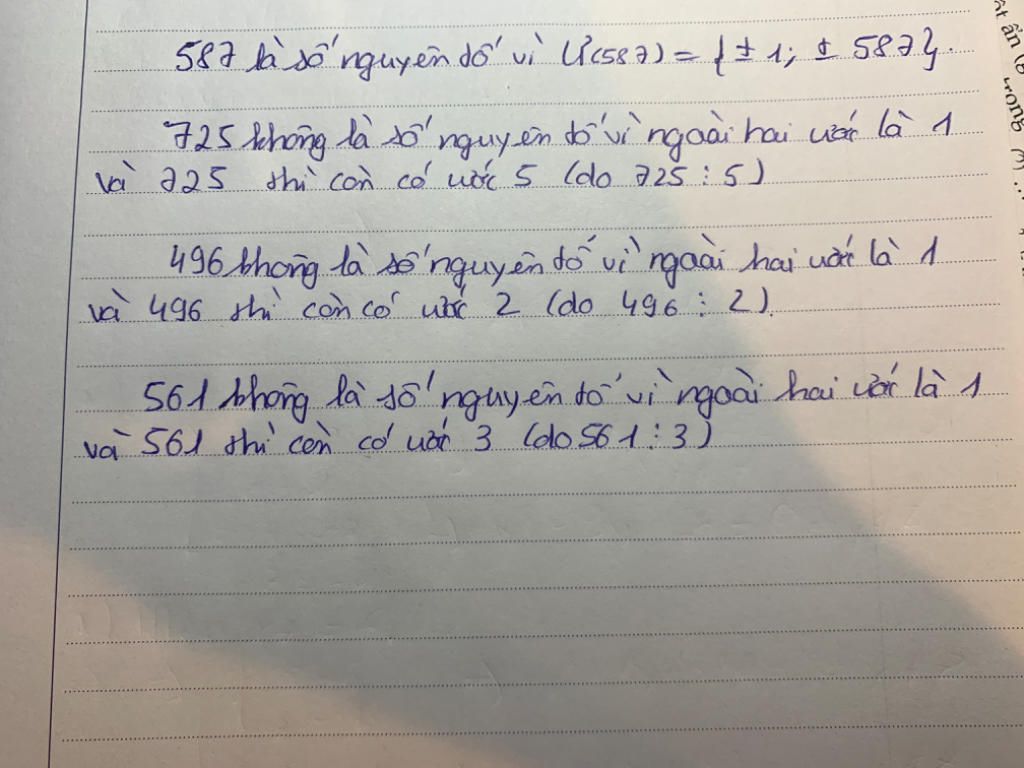 587 là số nguyên tố vì Ư(587) = {± 1; ± 587}.
725 không là số nguyên tố vì ngoài hai ước là 1
và 725 thì còn có ước 5 (do 725 ⋮ 5)
496 không là số nguyên tố vì ngoài hai ước là 1
và 496 thì còn có ước 2 (do 496 ⋮ 2).
561 không là số nguyên tố vì ngoài hai ước là 1
và 561 thì còn có ước 3 (do 561 ⋮ 3)